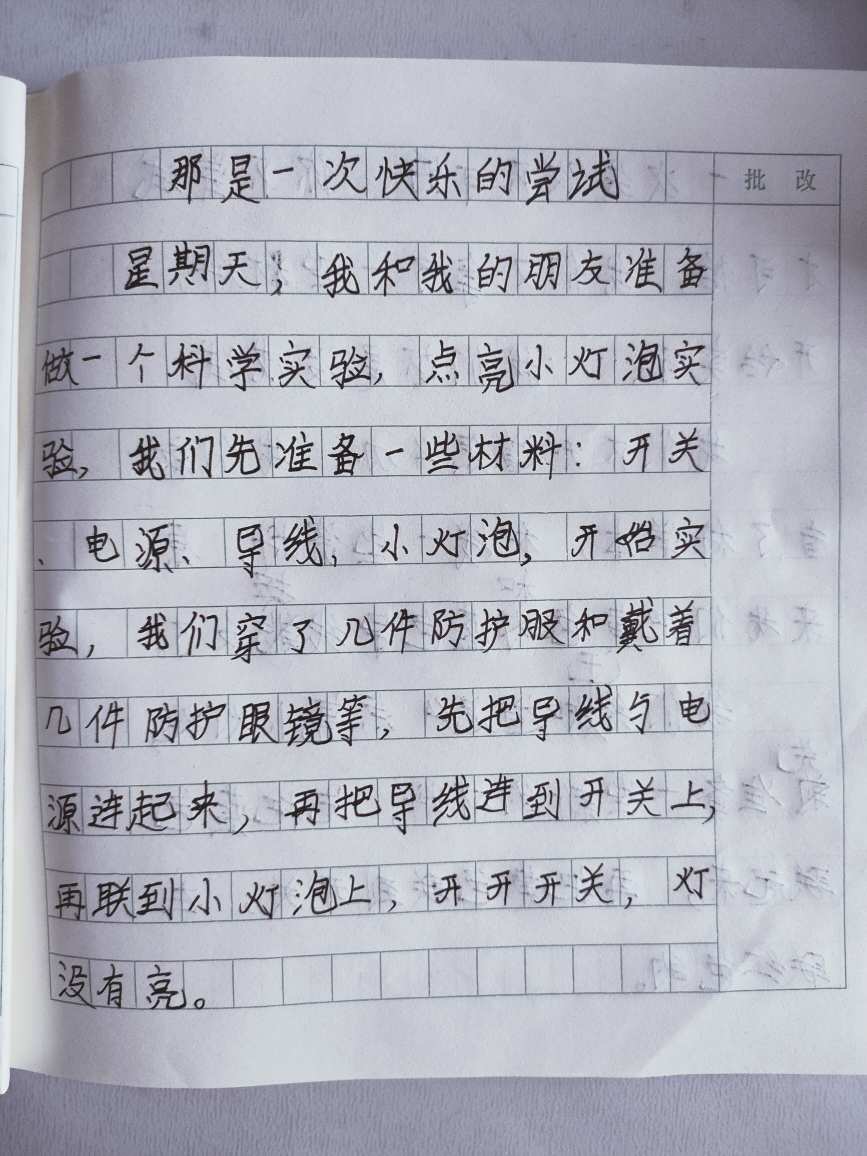 那是一次快乐的尝试
批改
星期天，我和我的朋友准备
做一个科学实验，点亮小灯泡实
验，我们先准备一些材料：开关
、电源、导线、小灯泡，开始实
验，我们穿了几件防护服和戴着
几件防护眼镜等，先把导线与电
源连起来，再把导线连到开关上，
再联到小灯泡上，开开开关，灯
没有亮。